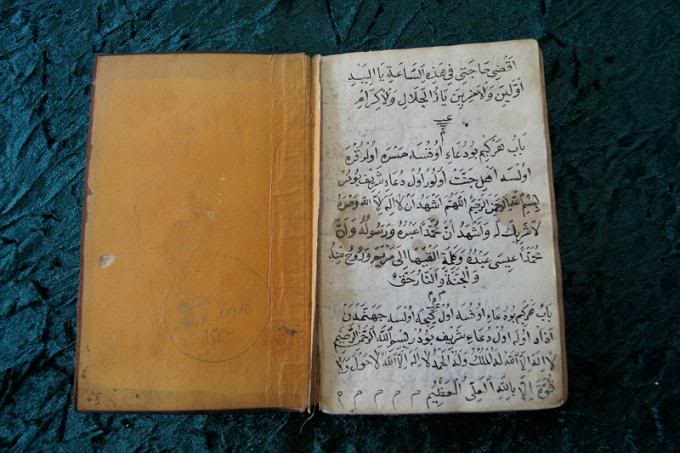 اقضى حاجتى فى هذه الساعة يا اله
اولين والاخرين ياذ الجلال ولاكرام
باب هر كيم بو دعاء اوقسه اولد
اولسه اهل جنت اولور اول دعاء شريف بودر
بسم الله الرحمن الرحيم اللهم اشهد ان لا اله الا الله وحده
لا شريك له واشهد ان محمدا عبده ورسوله وان
عيسى عبده وكلمة القيها الى مريم وروح منه
والجنة والنار حق
باب هر كيم بو دعاء اوقسه اول كيجه اولسه جهنمدن
ازاد اوله اول دعاء شريف بودر بسم الله الرحمن الرحيم
لا اله الا الله له الملك وله الحمد لا اله الا الله لا حول ولا
قوة الا بالله العلى العظيم م م م م م
150-